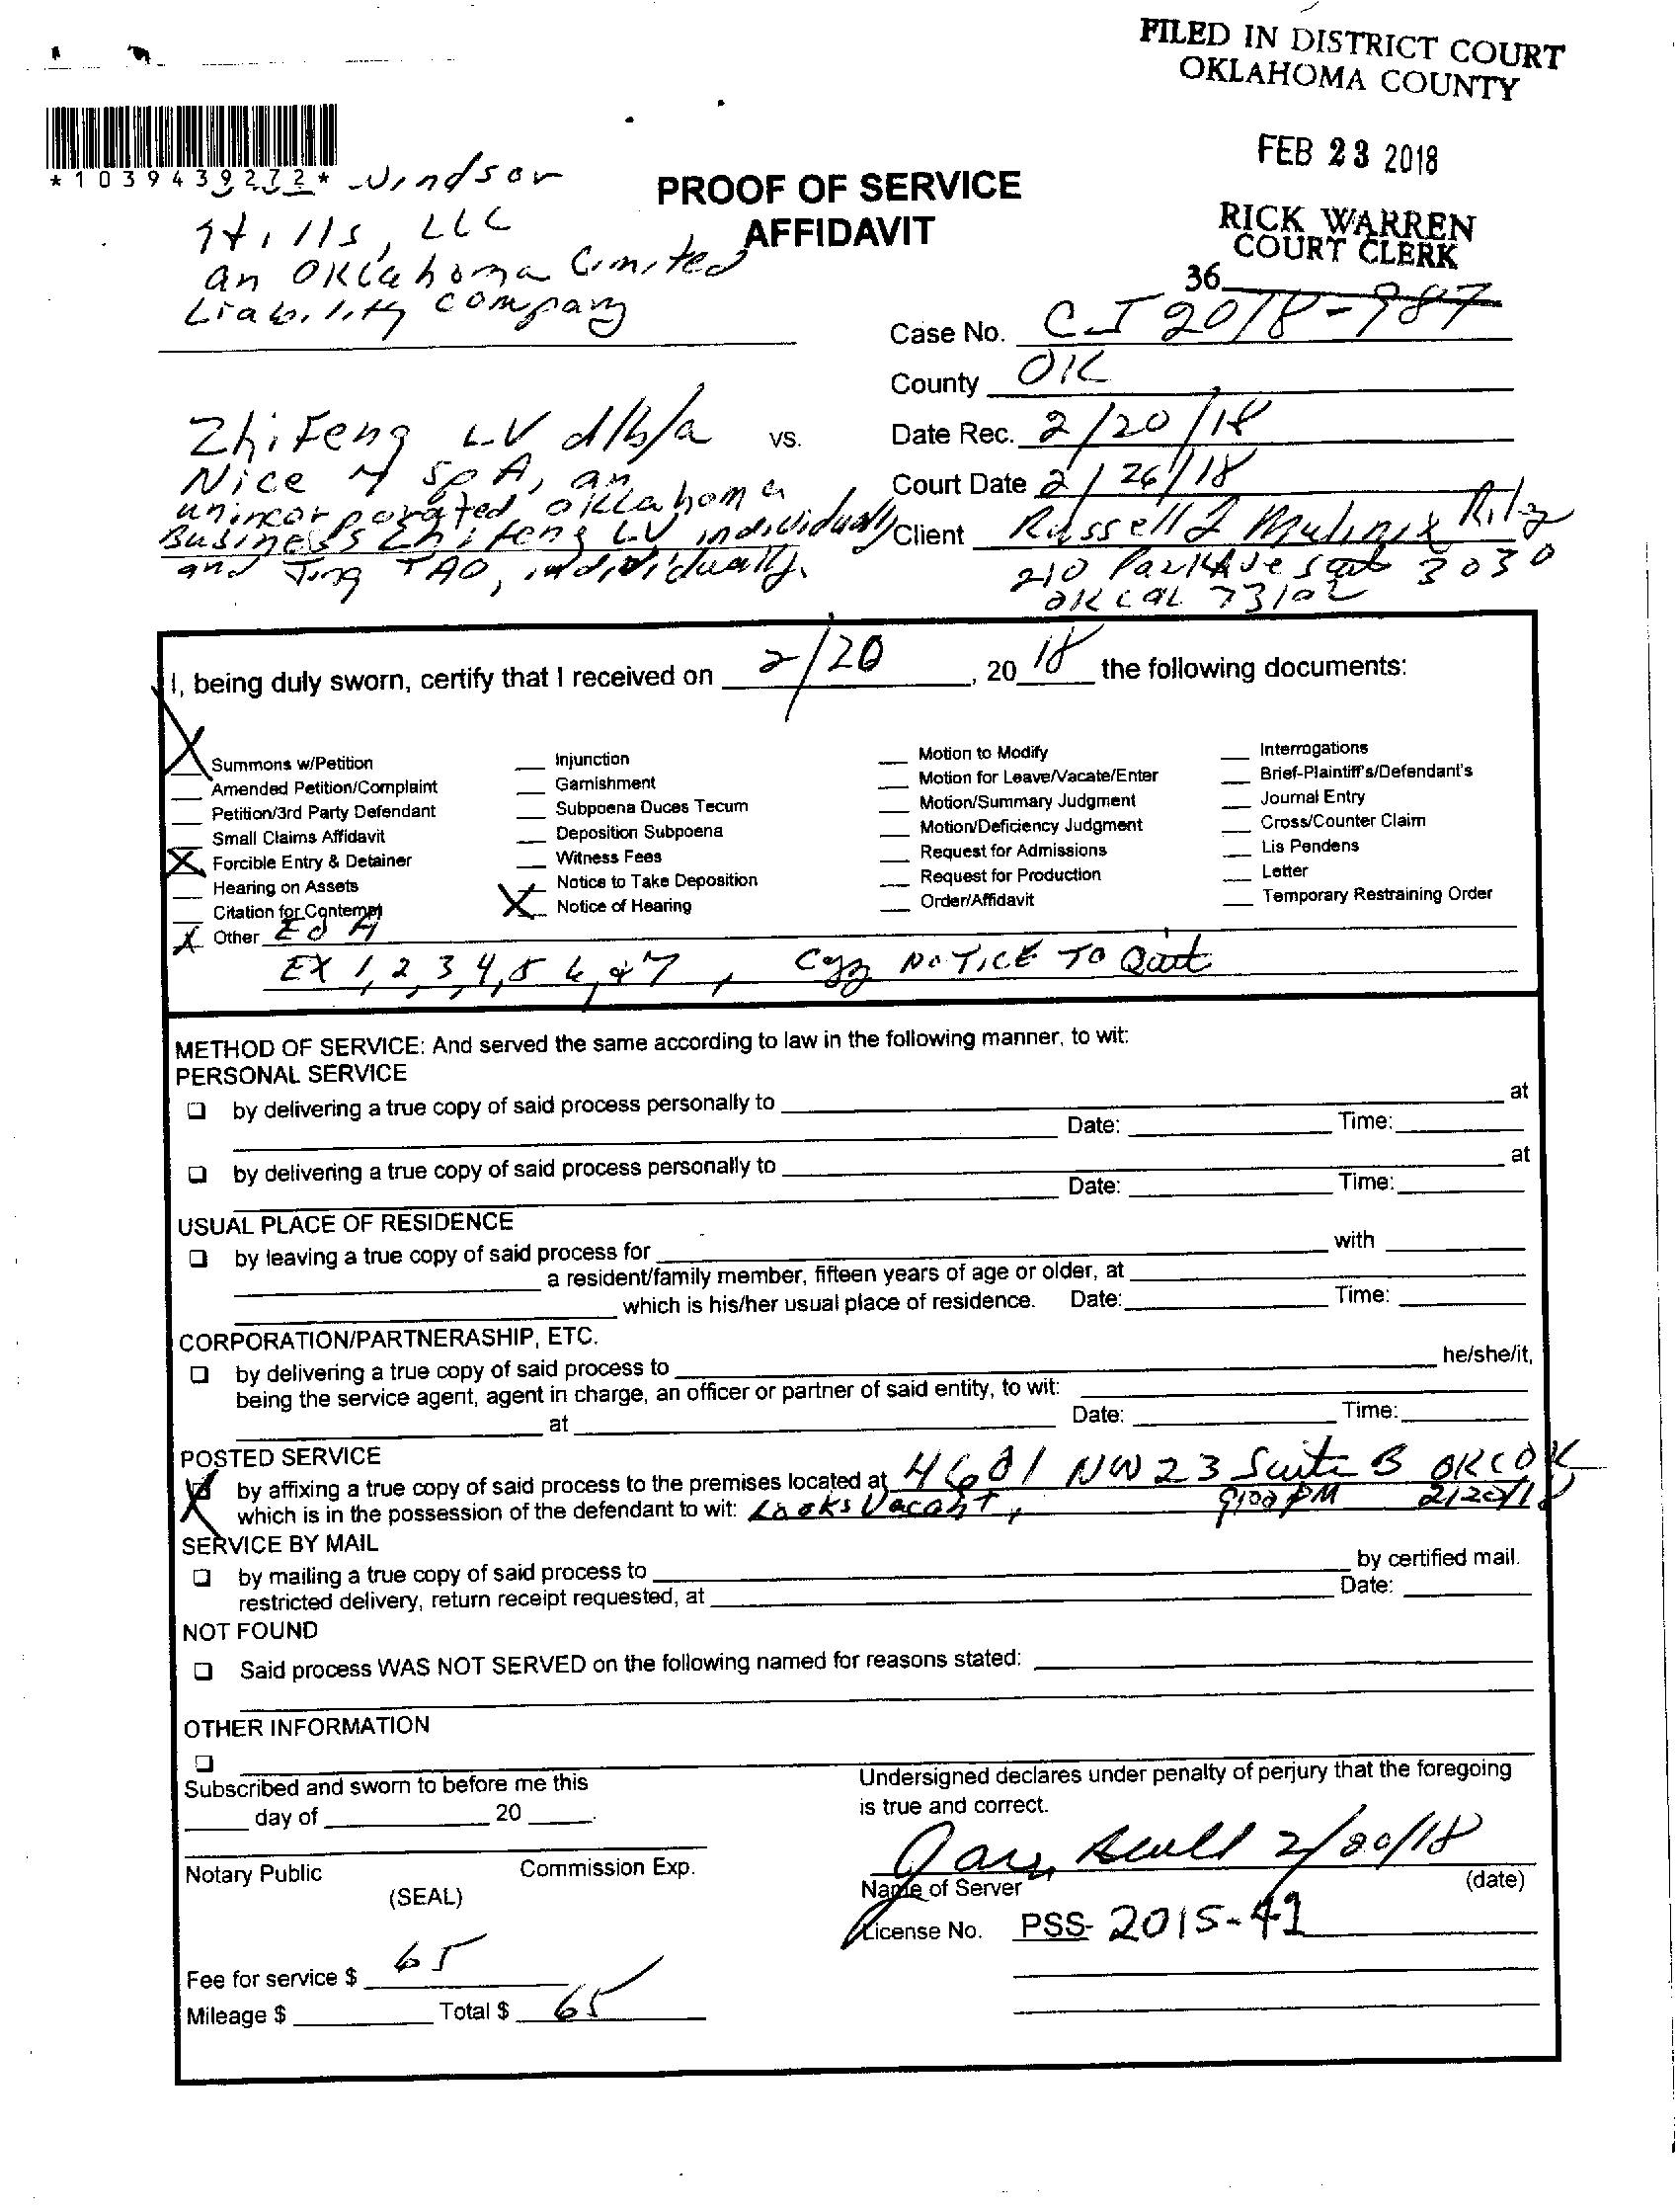 FILED IN DISTRICT COURT
OKLAHOMA COUNTY
FEB 23 2018
RICK WARREN
COURT CLERK
36
*1039439272*
Windsor
Hills, LLC
an Oklahoma Limited
Liability company
PROOF OF SERVICE
AFFIDAVIT
Case No. CJ 2018-987
County OK
Zhifeng LV d/b/a vs.
Date Rec. 2/20/18
Nice M SpA, an
Court Date 2/26/18
unincorporated oklahoma
Business Zhifeng LV individually
Client Russell L Mulinix Riley
and Ting TAO, individually.
210 Park Ave 3030
73102
I, being duly sworn, certify that I received on 2/20, 2018 the following documents:
X Summons w/Petition
Amended Petition/Complaint
Petition/3rd Party Defendant
Small Claims Affidavit
X Forcible Entry & Detainer
Hearing on Assets
Citation for Contempt
X Other E J A
Injunction
Garnishment
Subpoena Duces Tecum
Deposition Subpoena
Witness Fees
Notice to Take Deposition
X Notice of Hearing
Motion to Modify
Motion for Leave/Vacate/Enter
Motion/Summary Judgment
Motion/Deficiency Judgment
Request for Admissions
Request for Production
Order/Affidavit
Interrogations
Brief-Plaintiff's/Defendant's
Journal Entry
Cross/Counter Claim
Lis Pendens
Letter
Temporary Restraining Order
EX 1, 2, 3, 4, 5 6, & 7, Copy NOTICE TO Quit
METHOD OF SERVICE: And served the same according to law in the following manner, to wit:
PERSONAL SERVICE
by delivering a true copy of said process personally to at
Date: Time:
by delivering a true copy of said process personally to at
Date: Time:
USUAL PLACE OF RESIDENCE
by leaving a true copy of said process for with
a resident/family member, fifteen years of age or older, at
which is his/her usual place of residence. Date: Time:
CORPORATION/PARTNERASHIP, ETC.
by delivering a true copy of said process to he/she/it,
being the service agent, agent in charge, an officer or partner of said entity, to wit:
at Date: Time:
POSTED SERVICE
X by affixing a true copy of said process to the premises located at 4601 NW 23 Suite B OKC OK
which is in the possession of the defendant to wit: Looks Vacant, 9:00 PM 2/20/18
SERVICE BY MAIL
by mailing a true copy of said process to by certified mail.
restricted delivery, return receipt requested, at Date:
NOT FOUND
Said process WAS NOT SERVED on the following named for reasons stated:
OTHER INFORMATION
Subscribed and sworn to before me this
day of 20 .
Notary Public Commission Exp.
(SEAL)
Undersigned declares under penalty of perjury that the foregoing
is true and correct.
Gary 2/20/18
Name of Server (date)
License No. PSS- 2015-41
Fee for service $ 65
Mileage $ Total $ 65